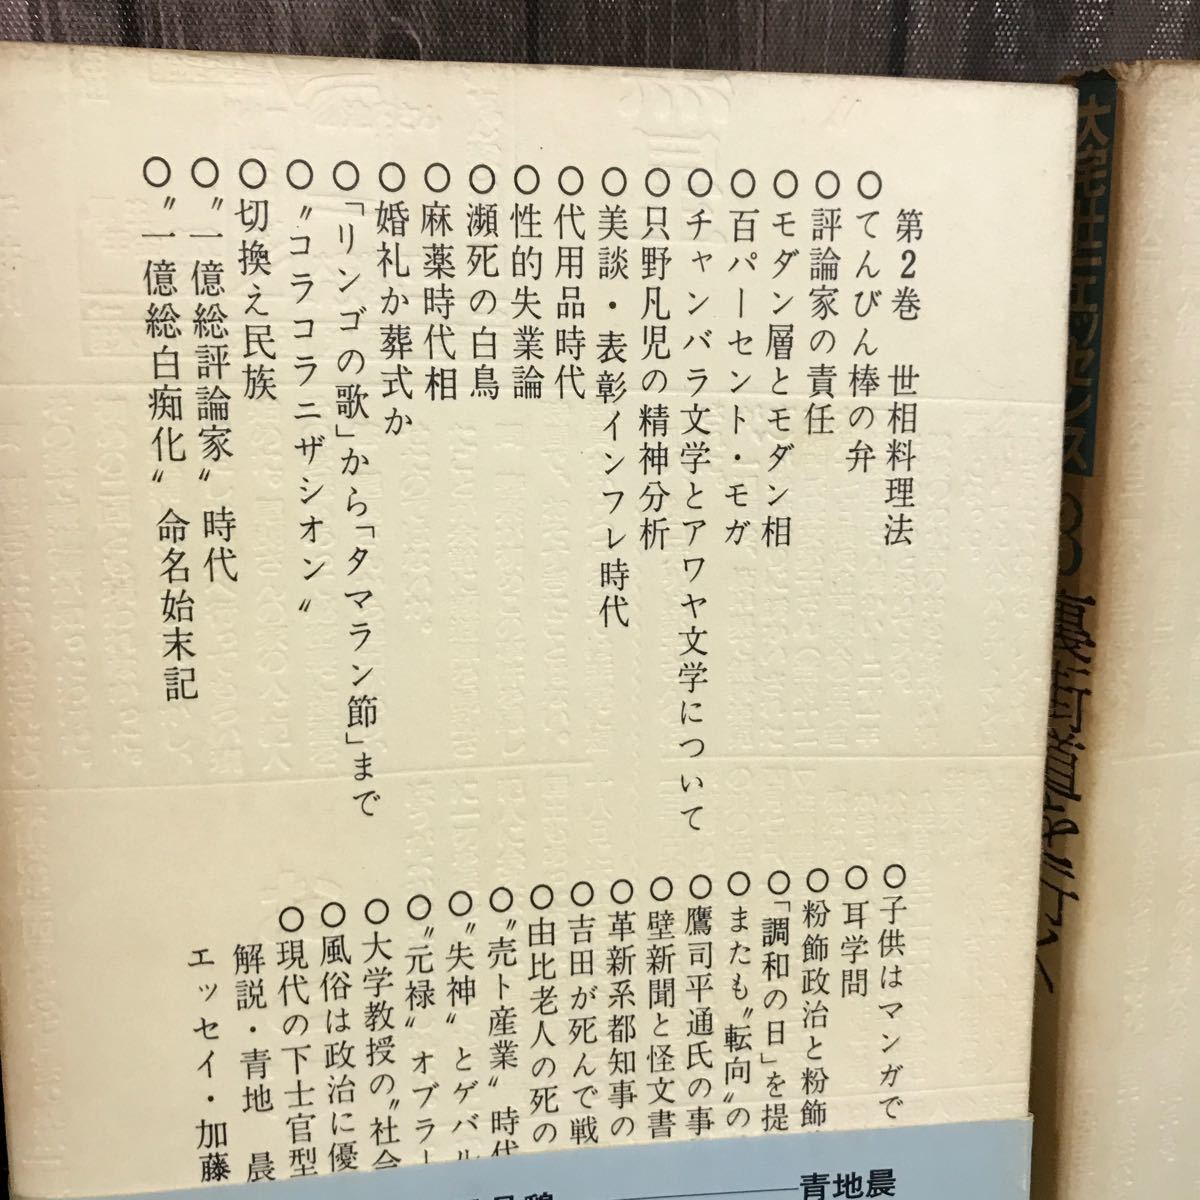 第2巻 世相料理法
○てんびん棒の弁
○評論家の責任
○モダン層とモダン相
○百パーセント・モガ
○チャンバラ文学とアワヤ文学について
○只野凡児の精神分析
○美談・表彰インフレ時代
○代用品時代
○性的失業論
○瀕死の白鳥
○麻薬時代相
○婚礼か葬式か
○「リンゴの歌」から「タマラン節」まで
○〝コラコラニザシオン〟
○切換え民族
○〝一億総評論家〟時代
○〝一億総白痴化〟命名始末記
○子供はマンガで
○耳学問
○粉飾政治と粉飾
○「調和の日」を提
○またも〝転向〟の
○鷹司平通氏の事
○壁新聞と怪文書
○革新系都知事の
○吉田が死んで戦
○由比老人の死の
○〝売ト産業〟時代
○〝失神〟とゲバル
○〝元禄〟オブラー
○大学教授の〝社会
○風俗は政治に優
○現代の下士官型
解説・青地 晨
エッセイ・加藤
青地晨
大宅壮一エッセンス
3
裏街道を行く